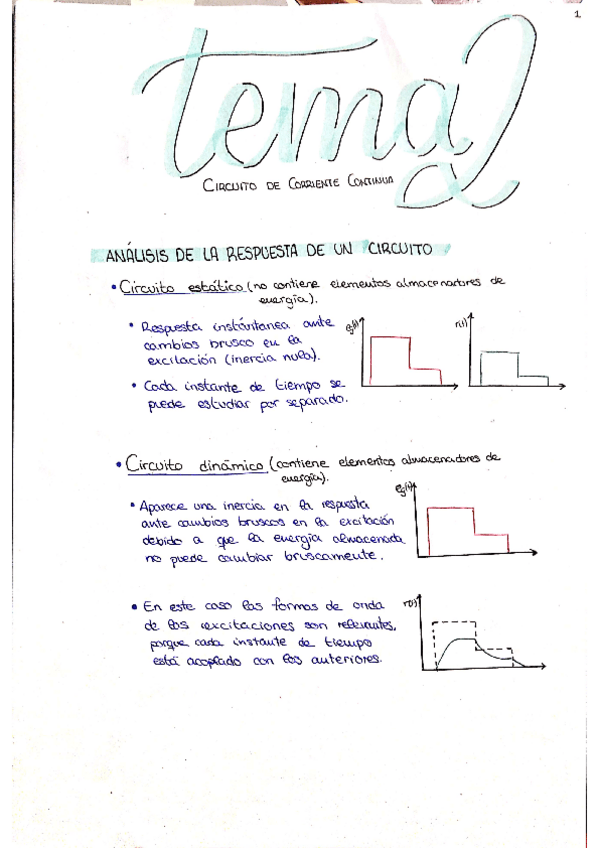 1
tema 2
CIRCUITO DE CORRIENTE CONTINUA
ANÁLISIS DE LA RESPUESTA DE UN CIRCUITO
• Circuito estático (no contiene elementos almacenadores de
energía).
• Respuesta instántanea ante
cambios brusco en la
excitación (inercia nula).
• Cada instante de tiempo se
puede estudiar por separado.
eg(t)
r(t)
• Circuito dinámico (contiene elementos almacenadores de
energía).
• Aparece una inercia en la respuesta
ante cambios bruscos en la excitación
debido a que la energía almacenada
no puede cambiar bruscamente.
eg(t)
• En este caso las formas de onda
de las excitaciones son relevantes,
porque cada instante de tiempo
está acoplado con los anteriores.
r(t)